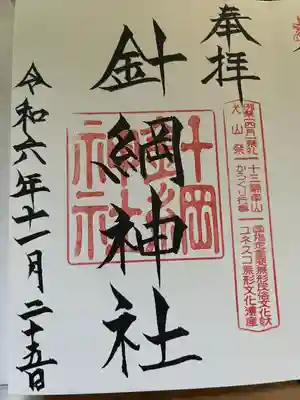 奉拝
犬山祭
十三輌車山
からくり行事
国指定重要無形民俗文化財
ユネスコ無形文化遺産
針綱神社
針綱神社
令和六年十一月二十五日